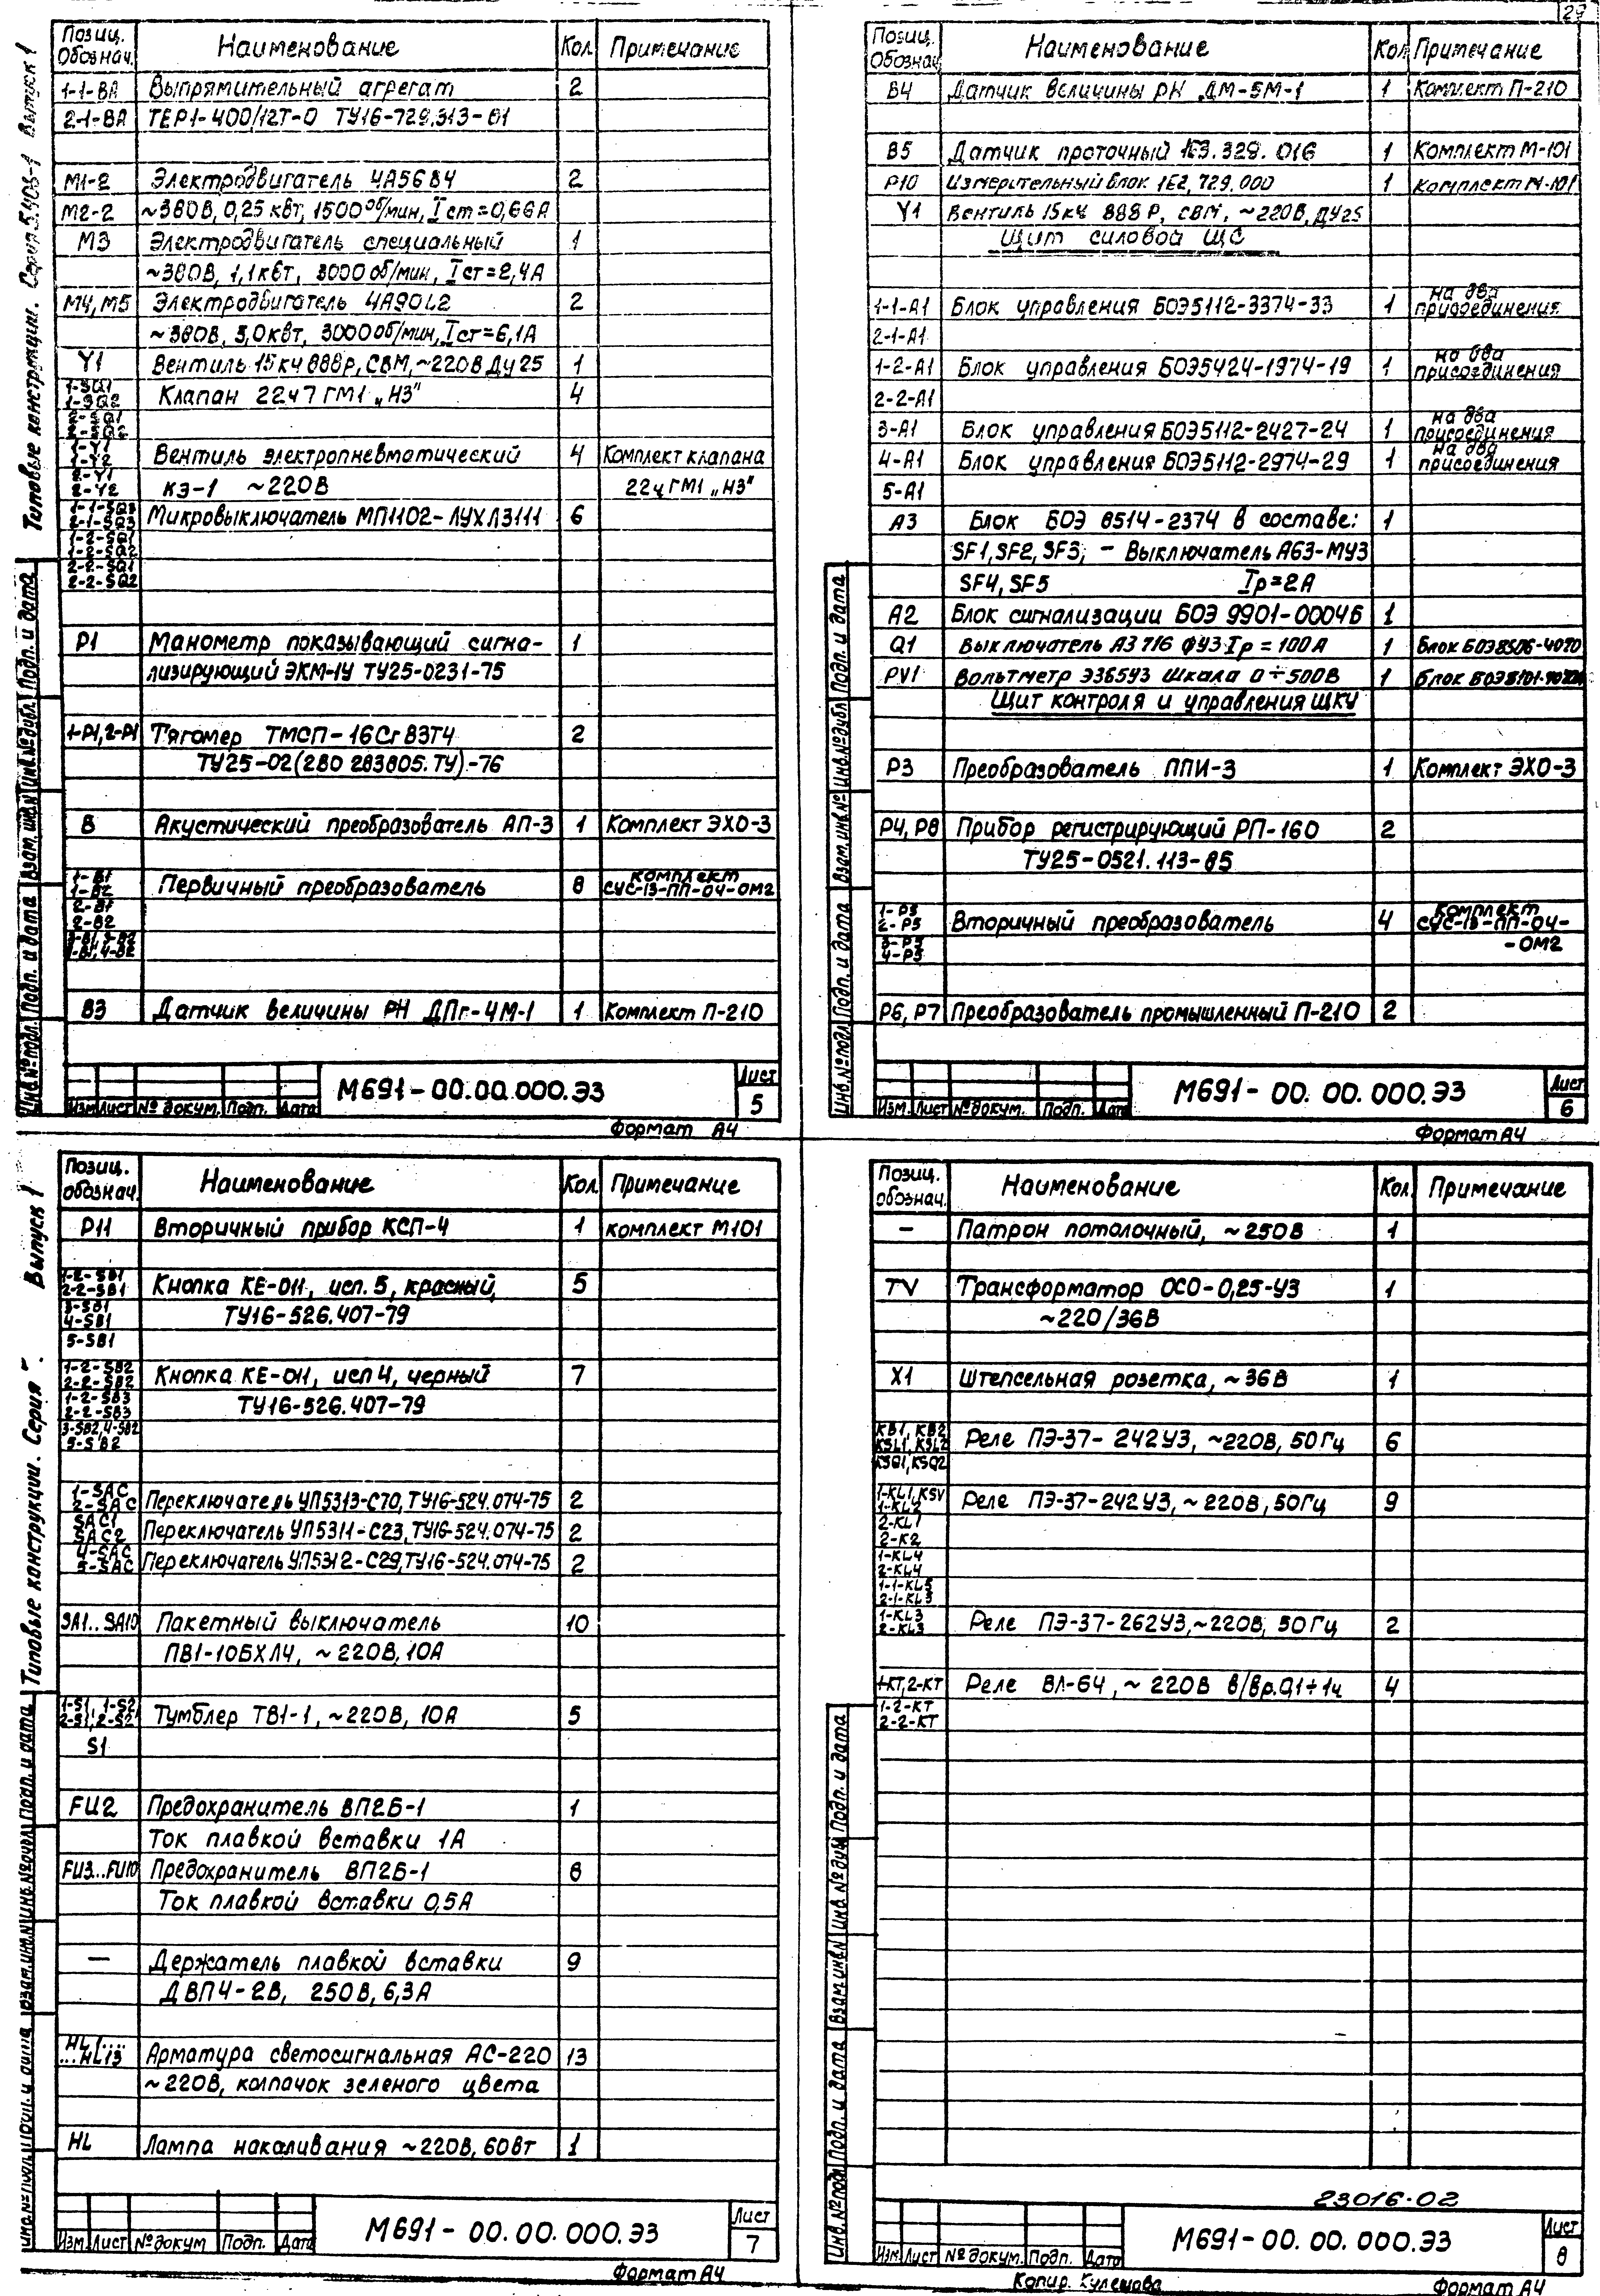 29
Типовые конструкции. Серия 5.408-1 Выпуск 1
Позиц. Обознач. Наименование Кол. Примечание
1-1-ВА Выпрямительный агрегат 2
2-1-ВА ТЕР1-400/12Т-0 ТУ16-729.313-81
М1-2 Электродвигатель 4А56В4 2
М2-2 ~380В, 0,25 кВт, 1500 об/мин, Iст=0,66А
М3 Электродвигатель специальный 1
~380В, 1,1кВт, 3000 об/мин, Iст=2,4А
М4, М5 Электродвигатель 4А90L2 2
~380В, 3,0кВт, 3000 об/мин, Iст=6,1А
Y1 Вентиль 15кч 888р, СВМ, ~220В Ду 25 1
1-SQ1
1-SQ2 Клапан 22ч7 ГМ1 „НЗ" 4
2-SQ1
2-SQ2
1-Y1
1-Y2 Вентиль электропневматический 4 Комплект клапана
2-Y1
2-Y2 КЭ-1 ~220В 22ч ГМ1 „НЗ"
1-1-SQ3
2-1-SQ3 Микровыключатель МП1102-ЛУХЛ3111 6
1-2-SQ1
1-2-SQ2
2-2-SQ1
2-2-SQ2
Р1 Манометр показывающий сигна- 1
лизирующий ЭКМ-1У ТУ25-0231-75
1-Р1, 2-Р1 Тягомер ТМСП-16СгВ3Т4 2
ТУ25-02(2В0 283805.ТУ)-76
В Акустический преобразователь АП-3 1 Комплект ЭХО-3
1-В1
1-В2 Первичный преобразователь 8 комплект СУС-13-ПП-04-ОМ2
2-В1
2-В2
3-В1, 3-В2
4-В1, 4-В2
В3 Датчик величины РН ДПг-4М-1 1 Комплект П-210
Инв.№подл. Подп. и дата Взам. инв.№ Инв.№дубл. Подп. и дата
Изм. Лист № докум. Подп. Дата М691-00.00.000.ЭЗ Лист 5
Формат А4
Позиц. Обознач. Наименование Кол. Примечание
В4 Датчик величины РН ДМ-5М-1 1 Комплект П-210
В5 Датчик проточный 1Е3.329.016 1 Комплект М-101
Р10 Измерительный блок 1Е2,729.000 1 Комплект М-101
Y1 Вентиль 15кч 888 Р, СВМ, ~220В, ДУ25
Щит силовой ЩС
1-1-А1 Блок управления БОЭ5112-3374-33 1 на два присоединения
2-1-А1
1-2-А1 Блок управления БОЭ5424-1974-19 1 на два присоединения
2-2-А1
3-А1 Блок управления БОЭ5112-2427-24 1 на два присоединения
4-А1 Блок управления БОЭ5112-2974-29 1 на два присоединения
5-А1
А3 Блок БОЭ 8514-2374 в составе: 1
SF1, SF2, SF3, - Выключатель А63-МУ3
SF4, SF5 Iр=2А
А2 Блок сигнализации БОЭ 9901-0004Б 1
Q1 Выключатель А3716 ФУ3 Iр=100А 1 Блок БОЭ8506-4070
PV1 Вольтметр Э365У3 Шкала 0÷500В 1
Щит контроля и управления ЩКУ
Р3 Преобразователь ППИ-3 1 Комплект ЭХО-3
Р4, Р8 Прибор регистрирующий РП-160 2
ТУ25-0521.113-85
1-Р5
2-Р5 Вторичный преобразователь 4 комплект СУС-13-ПП-04-
3-Р5
4-Р5 -ОМ2
Р6, Р7 Преобразователь промышленный П-210 2
Инв.№подл. Подп. и дата Взам. инв.№ Инв.№дубл. Подп. и дата
Изм. Лист № докум. Подп. Дата М691-00.00.000.ЭЗ Лист 6
Формат А4
Типовые конструкции. Серия Выпуск 1
Позиц. обознач. Наименование Кол. Примечание
Р11 Вторичный прибор КСП-4 1 комплект М101
1-2-SB1
2-2-SB1 Кнопка КЕ-011, исп. 5, красный, 5
3-SB1
4-SB1 ТУ16-526.407-79
5-SB1
1-2-SB2
2-2-SB2 Кнопка КЕ-011, исп 4, черный 7
1-2-SB3
2-2-SB3 ТУ16-526.407-79
3-SB2, 4-SB2
5-SB2
1-SAC
2-SAC Переключатель УП5313-С70, ТУ16-524.074-75 2
SAC1
SAC2 Переключатель УП5311-С23, ТУ16-524.074-75 2
4-SAC
5-SAC Переключатель УП5312-С29, ТУ16-524.074-75 2
SA1..SA10 Пакетный выключатель 10
ПВ1-10БХЛ4, ~220В, 10А
1-S1, 1-S2
2-S1, 2-S2 Тумблер ТВ1-1, ~220В, 10А 5
S1
FU2 Предохранитель ВП2Б-1 1
Ток плавкой вставки 1А
FU3...FU10 Предохранитель ВП2Б-1 8
Ток плавкой вставки 0,5А
— Держатель плавкой вставки 9
ДВП4-2В, 250В, 6,3А
HL1...
...HL13 Арматура светосигнальная АС-220 13
~220В, колпачок зеленого цвета
HL Лампа накаливания ~220В, 60Вт 1
Инв.№подл. Подп. и дата Взам.инв.№ Инв.№дубл. Подп. и дата
Изм. Лист № докум Подп. Дата М691-00.00.000.ЭЗ Лист 7
Формат А4
Позиц. обознач. Наименование Кол. Примечание
— Патрон потолочный, ~250В 1
TV Трансформатор ОСО-0,25-У3 1
~220/36В
X1 Штепсельная розетка, ~36В 1
KB1, KB2
KSL1, KSL2 Реле ПЭ-37-242У3, ~220В, 50Гц 6
KSQ1, KSQ2
1-KL1, KSV
1-KL2 Реле ПЭ-37-242У3, ~220В, 50Гц 9
2-KL1
2-K2
1-KL4
2-KL4
1-1-KL5
2-1-KL5
1-KL3
2-KL3 Реле ПЭ-37-262У3, ~220В, 50Гц 2
1-КТ, 2-КТ Реле ВЛ-64, ~220В в/вр.0,1÷1ч 4
1-2-КТ
2-2-КТ
Инв.№подл Подп. и дата Взам.инв.№ Инв.№дубл Подп. и дата
23016-02
Изм. Лист № докум. Подп. Дата М691-00.00.000.ЭЗ Лист 8
Копир. Кулешова Формат А4